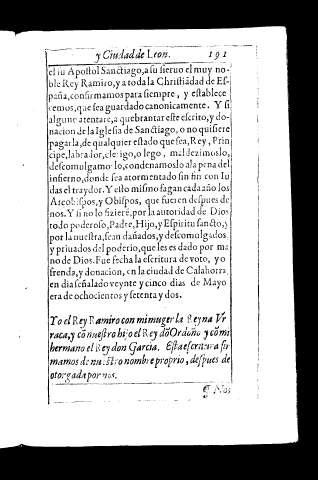 y Ciudad de Leon. 191
el su Apostol Sanctiago, a su sieruo el muy no
ble Rey Ramiro, y a toda la Christiãdad de Es-
paña, confirmamos para siempre, y establece
cemos, que sea guardado canonicamente. Y si
alguno atentare, a quebrantar este escrito, y do-
nacion de la Iglesia de Sanctiago, o no quisiere
pagarla, de qualquier estado que sea, Rey, Prin
cipe, labrador, clerigo, o lego, maldezimoslo,
descomulgamoslo, condenamoslo a la pena del
infierno, donde sea atormentado sin fin con Iu
das el traydor. Y esto mismo fagan cada año los
Arcobispos, y Obispos, que fueren despues de
nos. Y si no lo fizierē, por la autoridad de Dios
todo poderoso, Padre, Hijo, y Espiritu sancto, y
por la nuestra, sean dañados, y descomulgados.
y priuados del poderio, que les es dado por ma
no de Dios. Fue fecha la escritura de voto, y o
frenda, y donacion, en la ciudad de Calahorra,
en dia señalado veynte y cinco dias de Mayo
era de ochocientos y setenta y dos.
Yo el Rey Ramiro con mi muger la Reyna Vr
raca, y cõ nuestro hijo el Rey dõ Ordoño y cõ mi
hermano el Rey don Garcia. Esta escritura fir
mamos de nuestro nombre proprio, despues de
otorgada por nos.
¶ Nos